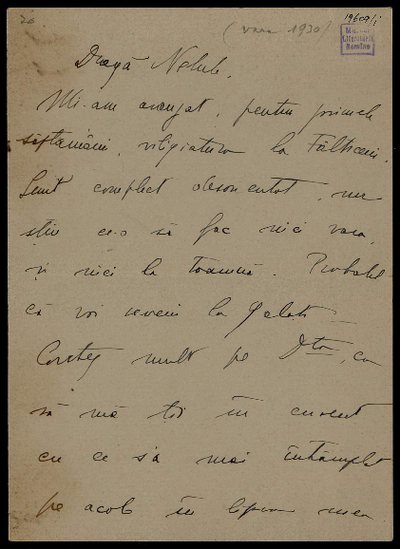 20
(vara 1930)
19609/1
Muzeul
Literaturii
Române
Dragă Nelule,
Mi-am aranjat, pentru primele
săptămâni, vilegiatura la Fălticeni.
Sunt complect desorientat, nu
știu ce-o să fac nici vara,
și nici la toamnă. Probabil
că voi reveni la Galați.
Contez mult pe Dta, ca
să mă ții în curent
cu ce s'a mai întâmplat
pe acolo în lipsa mea